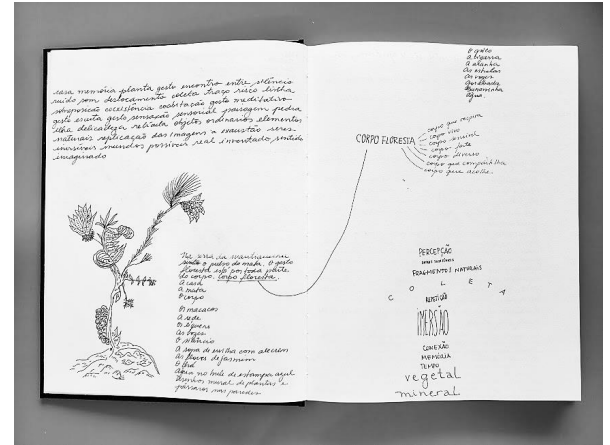 casa memória planta gesto encontro entre silêncio
ruído som deslocamento coleta traço risco linha
sobreposição coexistência coabitação gesto meditativo
gesto escuta gesto sensação sensorial paisagem pedra
ilha delicadeza relicário objetos ordinários elementos
naturais replicação das imagens a exaustão seres
invisíveis mundos possíveis real inventado sentido
imaginado
Na serra da mantiqueira
sinto o pulso da mata. O gesto
floresta está por toda parte
do corpo. Corpo floresta.
A casa
A mata
O corpo
Os macacos
A rede
Os líquens
As vozes
O silêncio
A sopa de ervilha com alecrim
As flores de jasmim
O chá
Água no bule de estampa azul
Desenhos mural de plantas e
pássaros nas paredes
O grilo
A cigarra
A aranha
As estrelas
As vozes
Água.
CORPO FLORESTA
corpo que respira
corpo vivo
corpo sensível
corpo forte
corpo diverso
corpo que compartilha
corpo que acolhe.
PERCEPÇÃO
FRAGMENTOS NATURAIS
COLETA
REPETIÇÃO
IMERSÃO
CONEXÃO
MEMÓRIA
TEMPO
vegetal
mineral